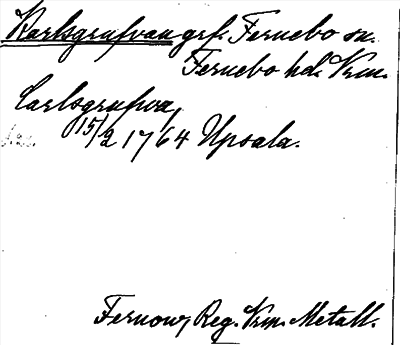 Karlsgrufvan grf. Fernebo sn.
Fernebo hd. Vrm.
Carlsgrufva,
15/2 1764 Upsala.
Fernow, Reg. Vrm. Metall.